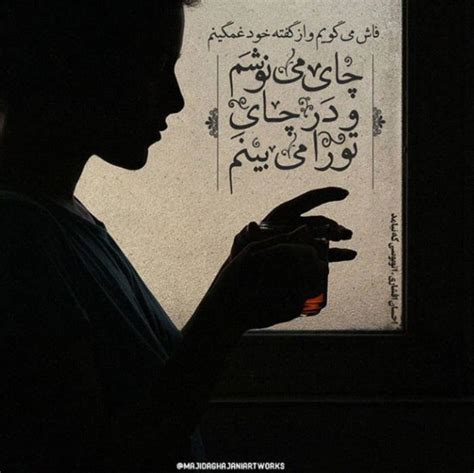 فاش می‌گویم و از گفته خود غمگینم
چای می‌نوشم
و در چای
تو را می‌بینم
@MAJIDAGHAJANIARTWORKS